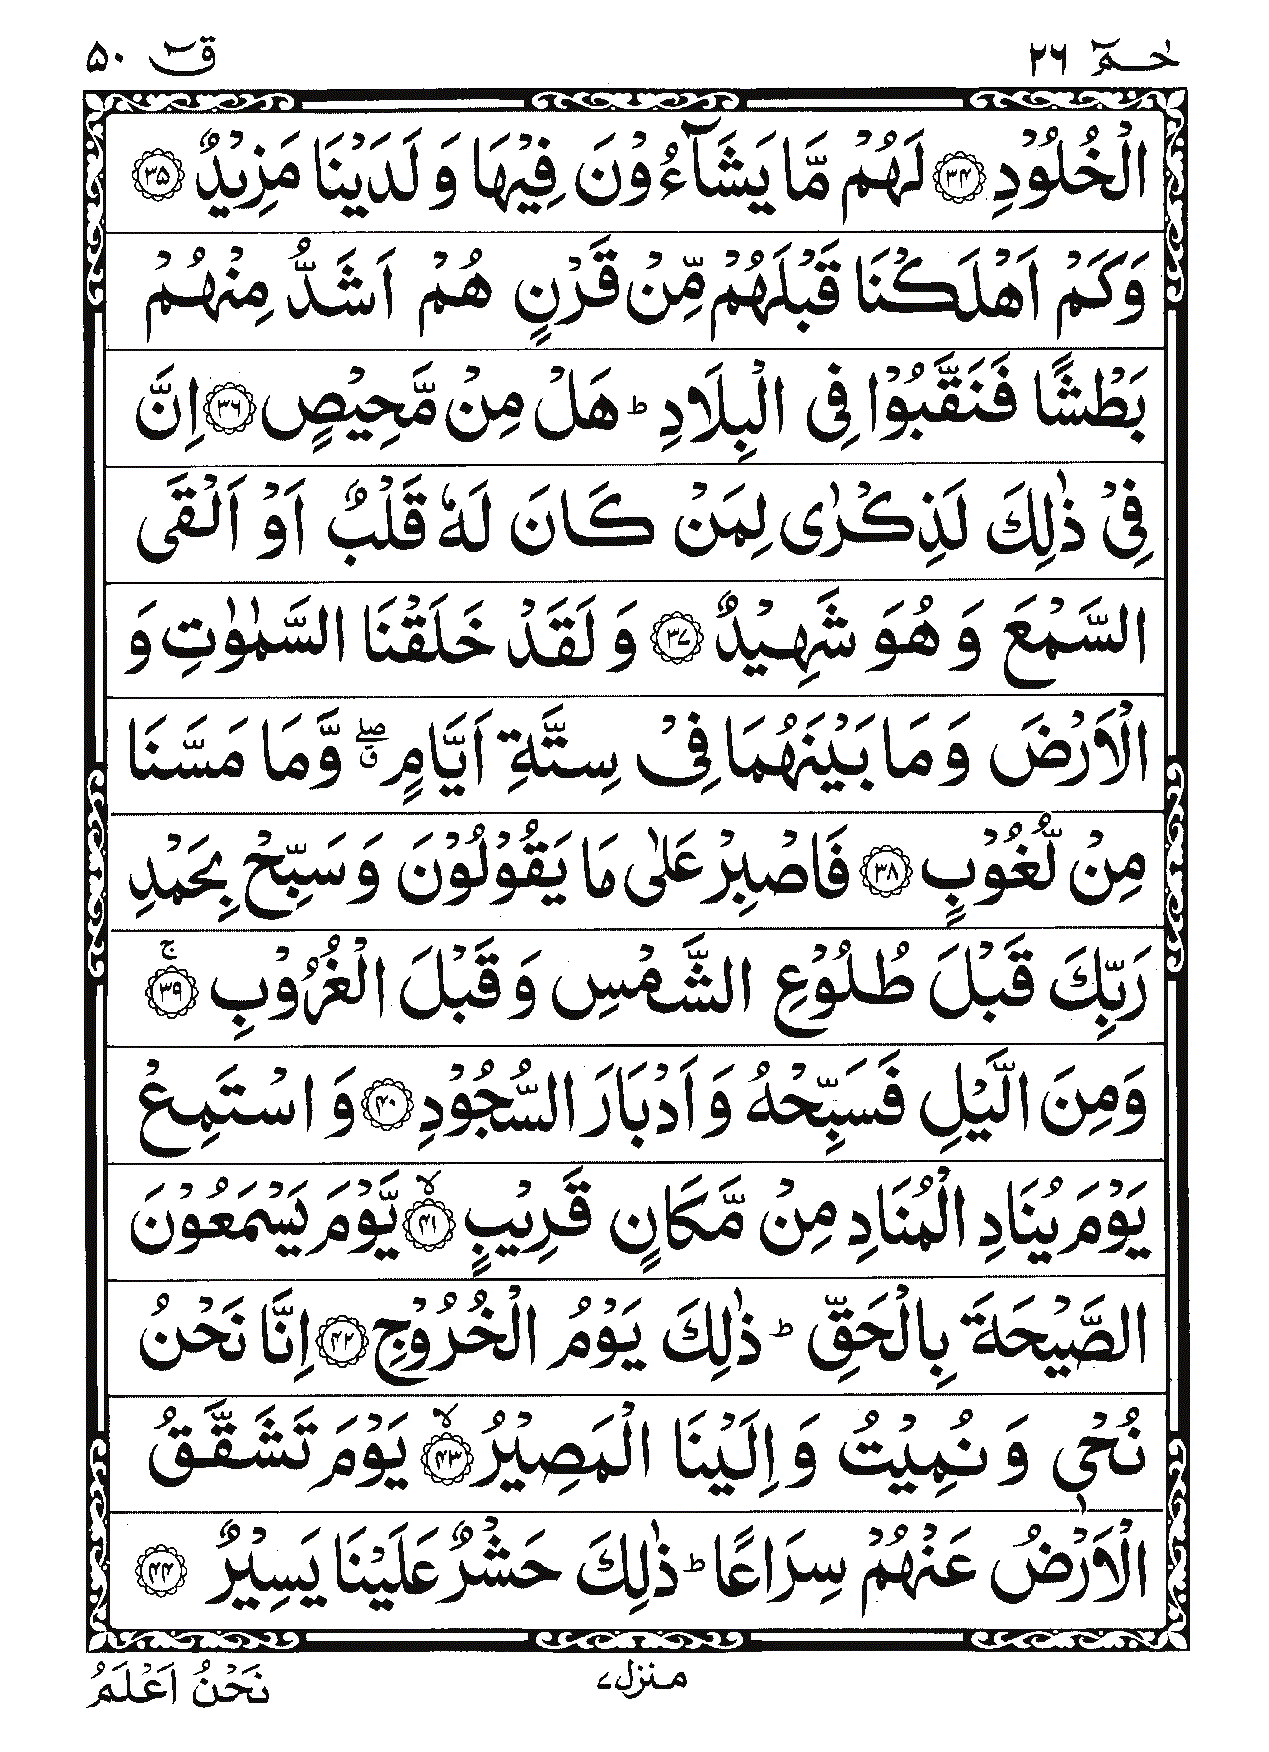 حٰمٓ ٢٦ قٓ ٥٠
الْخُلُوْدِ ﴿٣٤﴾ لَهُمْ مَّا يَشَآءُوْنَ فِيْهَا وَ لَدَيْنَا مَزِيْدٌ ﴿٣٥﴾
وَكَمْ اَهْلَكْنَا قَبْلَهُمْ مِّنْ قَرْنٍ هُمْ اَشَدُّ مِنْهُمْ
بَطْشًا فَنَقَّبُوْا فِی الْبِلَادِ ؕ هَلْ مِنْ مَّحِيْصٍ ﴿٣٦﴾ اِنَّ
فِیْ ذٰلِكَ لَذِكْرٰی لِمَنْ كَانَ لَهٗ قَلْبٌ اَوْ اَلْقَی
السَّمْعَ وَ هُوَ شَهِيْدٌ ﴿٣٧﴾ وَ لَقَدْ خَلَقْنَا السَّمٰوٰتِ وَ
الْاَرْضَ وَ مَا بَيْنَهُمَا فِیْ سِتَّةِ اَيَّامٍ ۖۗ وَّمَا مَسَّنَا
مِنْ لُّغُوْبٍ ﴿٣٨﴾ فَاصْبِرْ عَلٰی مَا يَقُوْلُوْنَ وَ سَبِّحْ بِحَمْدِ
رَبِّكَ قَبْلَ طُلُوْعِ الشَّمْسِ وَ قَبْلَ الْغُرُوْبِ ۚ ﴿٣٩﴾
وَمِنَ الَّيْلِ فَسَبِّحْهُ وَ اَدْبَارَ السُّجُوْدِ ﴿٤٠﴾ وَ اسْتَمِعْ
يَوْمَ يُنَادِ الْمُنَادِ مِنْ مَّكَانٍ قَرِيْبٍ ۙ ﴿٤١﴾ يَّوْمَ يَسْمَعُوْنَ
الصَّيْحَةَ بِالْحَقِّ ؕ ذٰلِكَ يَوْمُ الْخُرُوْجِ ﴿٤٢﴾ اِنَّا نَحْنُ
نُحْیٖ وَ نُمِيْتُ وَ اِلَيْنَا الْمَصِيْرُ ۙ ﴿٤٣﴾ يَوْمَ تَشَقَّقُ
الْاَرْضُ عَنْهُمْ سِرَاعًا ؕ ذٰلِكَ حَشْرٌ عَلَيْنَا يَسِيْرٌ ﴿٤٤﴾
منزل ٧ نَحْنُ اَعْلَمُ